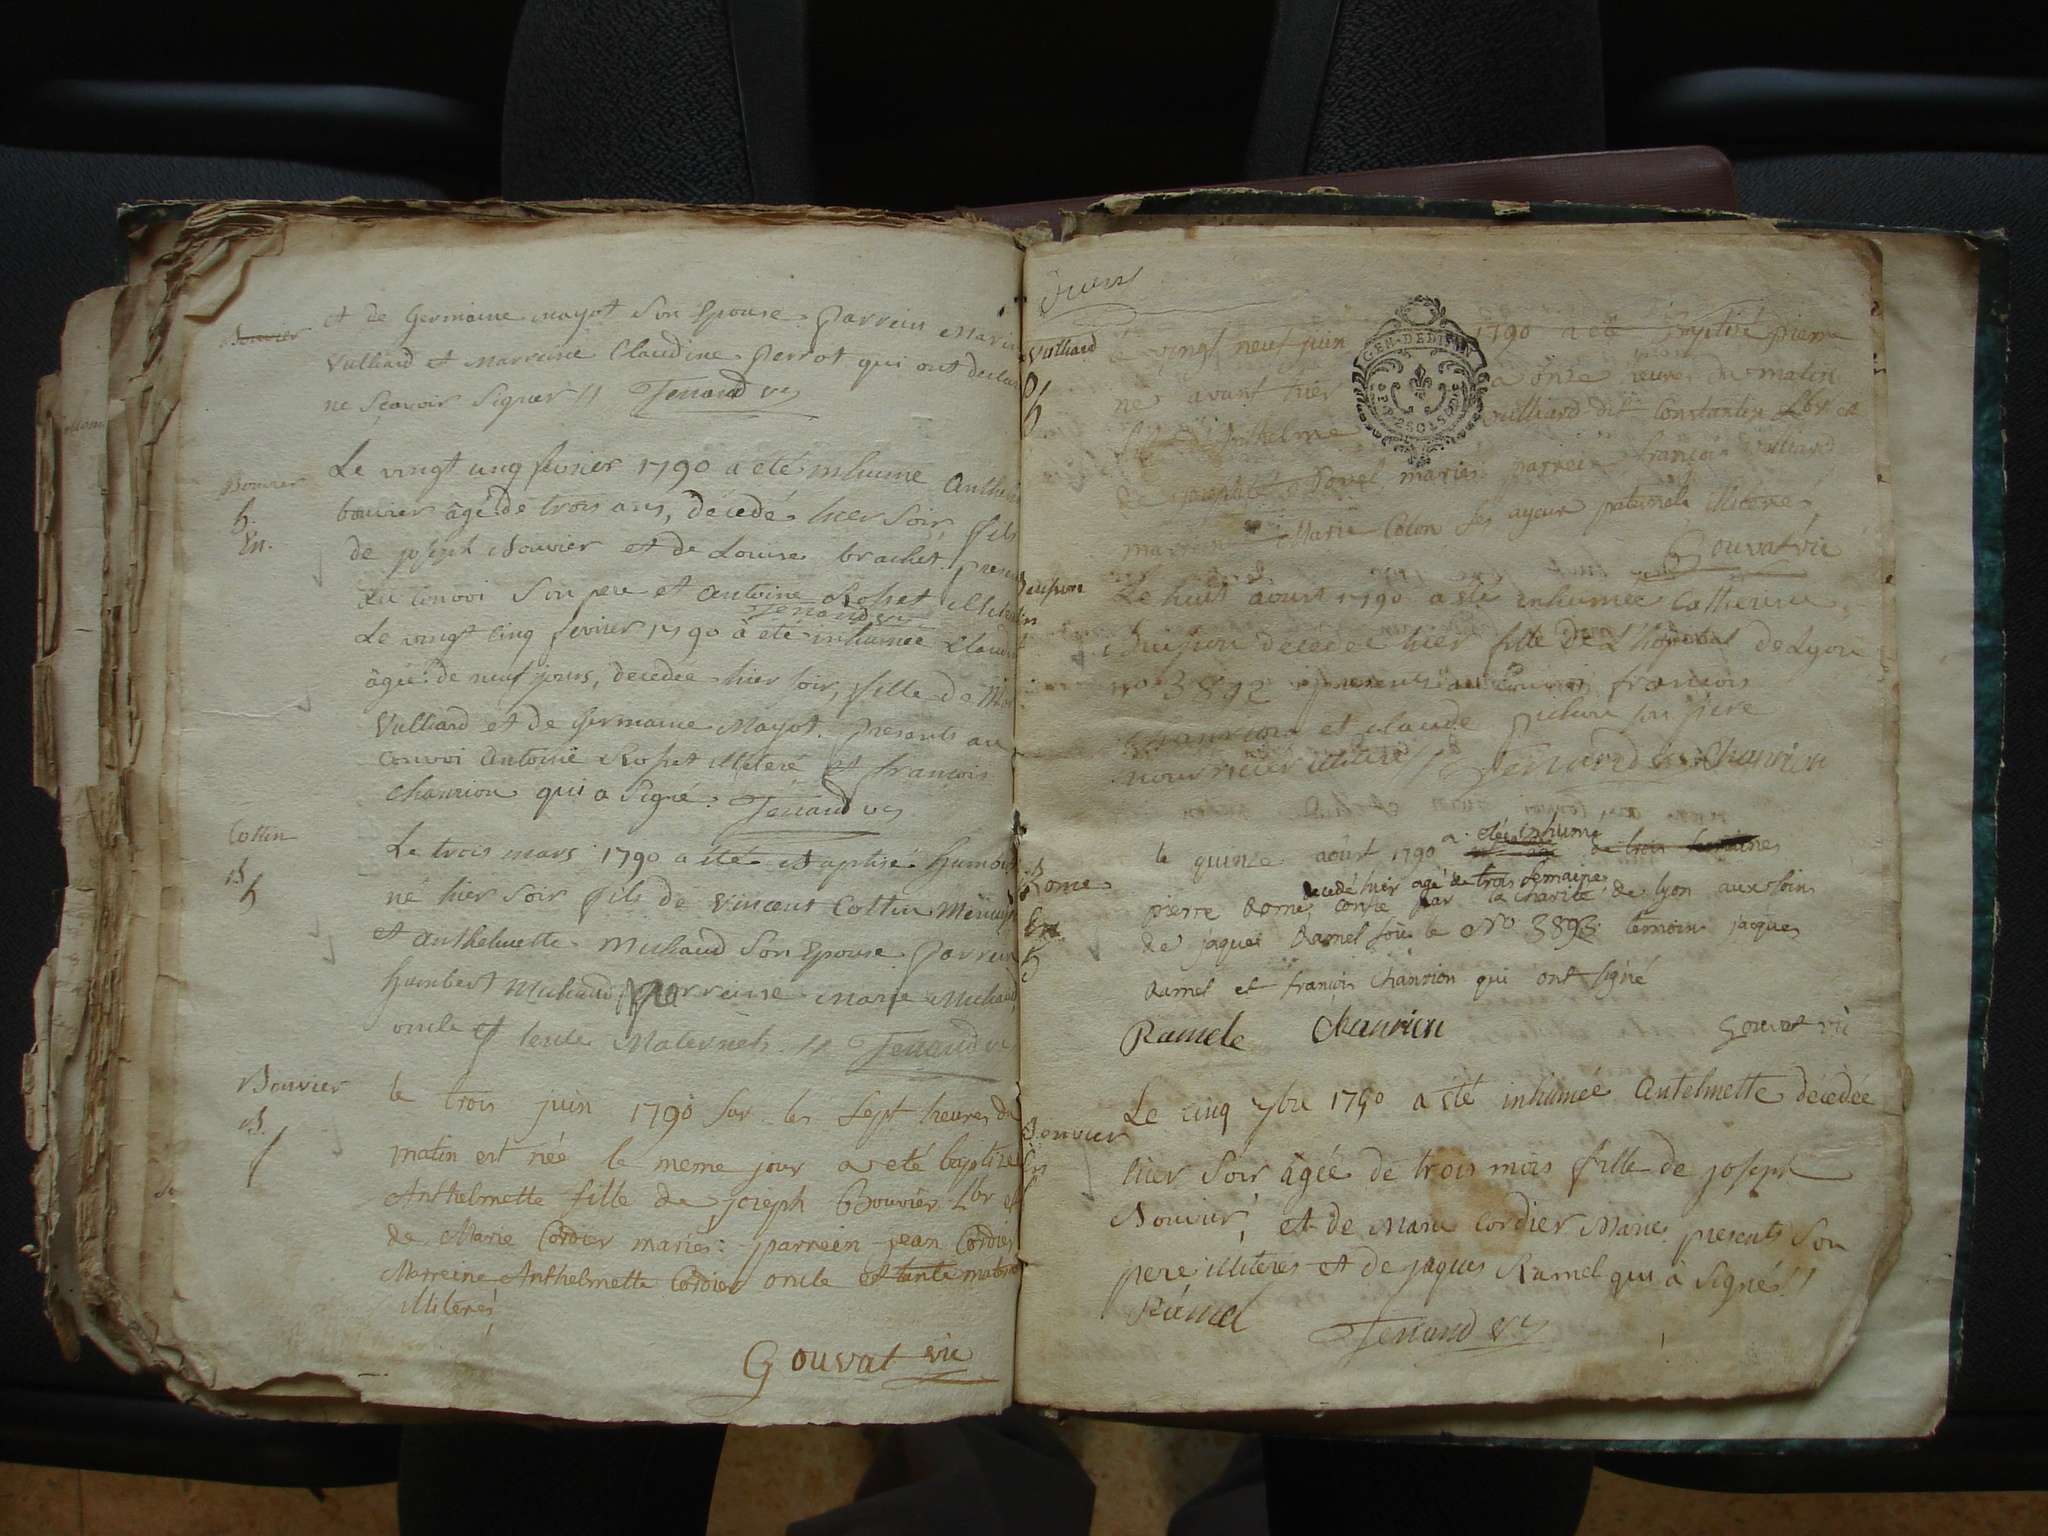 Bouvier
et de Germaine mayot son Epouse. Parrein Marie
Vulliard et Marreine Claudine Perrot qui ont declaré
ne Sçavoir Signer // Tenand vic
Bouvier
h.
En.
Le vingt cinq fevrier 1790 a eté inhumé Anthel
bouvier âgé de trois ans, décedé hier soir, fils
de joseph Bouvier et de Louise brachet. presents
au convoi son pere et antoine Rosset illiteré
Tenand vic
Le vingt cinq fevrier 1790 a été inhumée Claud
âgée de neuf jours, decedée hier soir, fille de
Vulliard et de Germaine Mayot. Presents au
convoi antoine Rosset illiteré et françois
chanrion qui a Signé. Tenand vic
Cottin
B
h
Le trois mars 1790 a été Baptisé
né hier soir fils de Vincent Cottin
et anthelmette Michaud son Epouse. Parrein
humbert Michaud, Marreine Marie Michaud
oncle et tente Maternels. // Tenand vic
Bouvier
B.
f
le trois juin 1790 sur les sept heures du
matin est née le meme jour a eté baptize
Anthelmette fille de joseph Bouvier Lbr et
de Marie Cordier mariés: parrein jean Cordier
Marreine Anthelmette Cordier oncle et tante mater
illiterés
Gouvat vic
Juin
Vulliard
le vingt neuf juin 1790 a eté Baptisé pierre
né avant hier à onze heures du matin
fils d'Anthelme Vuilliard dit Constantin Lbr et
de mariés parrein françois
marreine Marie Colon ses ayeux paternels illiterés
Gouvat vic
GEN. DE DIJON
Le huit aoust 1790 a été inhumée Catherine
décedée hier fille de L'hopital de Lyon
no 3892 presents au convoi françois
chanrion et claude son pere
nourricier illiteré // Tenand vic Chanrion
Rome
En.
h
le quinze aoust 1790 a été inhumé de trois semaines
decedé hier agé de trois semaines
pierre Rome, confié par la charité de lyon aux soins
de jaques Ramel sous le No 3893. temoins jacques
Ramel et françois Chanrion qui ont signé
Ramele Chanrion Gouvat vic
Bouvier
En
f
Le cinq 7bre 1790 a été inhumée Antelmette décedée
hier soir âgée de trois mois fille de joseph
Bouvier, et de Marie Cordier Maries. presents son
pere illiteres et de jaques Ramel qui à Signé. //
Ramel
Tenand vic